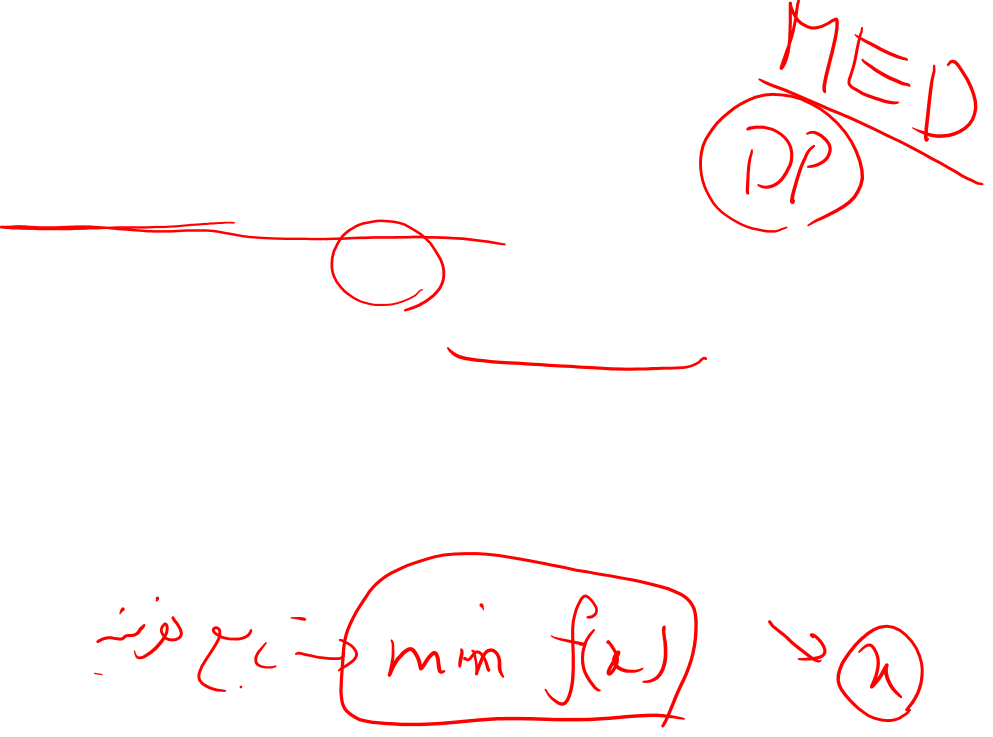 MED
DP
min f(x)
x